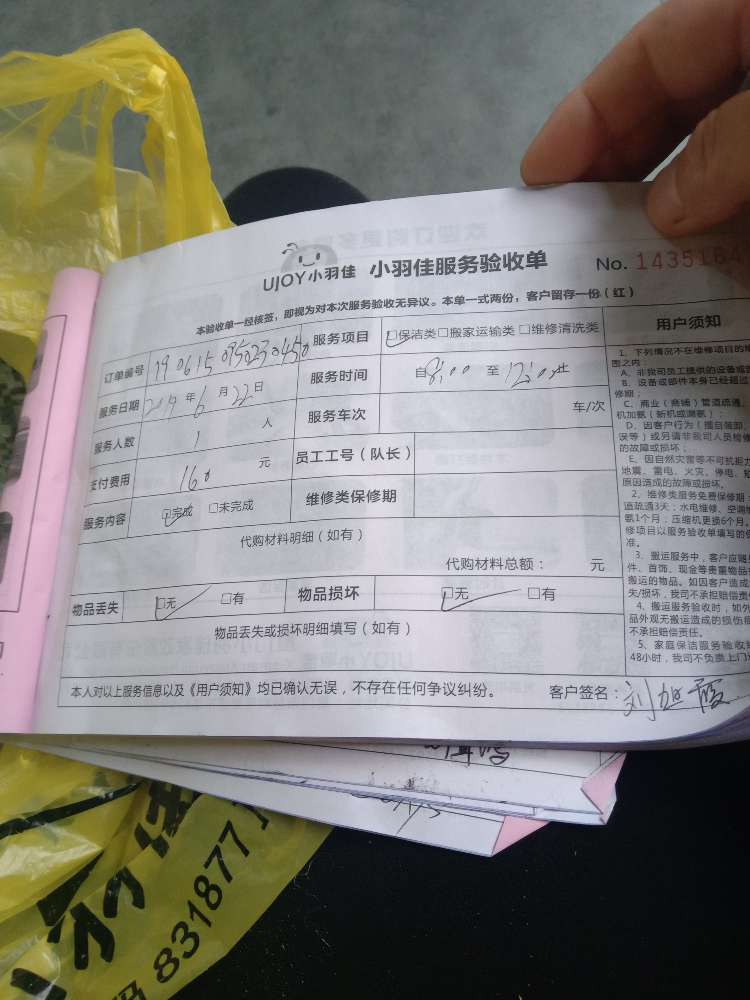 UJOY小羽佳 小羽佳服务验收单 No. 1435164
本验收单一经核签，即视为对本次服务验收无异议。本单一式两份，客户留存一份（红）
订单编号 服务项目 □保洁类□搬家运输类□维修清洗类
服务日期 2019年6月22日 服务时间 自8:00至12:00止
服务人数 1 人 服务车次 车/次
支付费用 160 元 员工工号（队长）
服务内容 □完成 □未完成 维修类保修期
代购材料明细（如有）
代购材料总额： 元
物品丢失 □无 □有 物品损坏 □无 □有
物品丢失或损坏明细填写（如有）
本人对以上服务信息以及《用户须知》均已确认无误，不存在任何争议纠纷。 客户签名：刘旭霞
用户须知
1、下列情况不在维修项目的
围之内
A、非我司员工提供的设备或
B、设备或部件本身已经超过
修期；
C、商业（商铺）管道疏通、
机加氨（新机或漏氨）；
D、因客户行为（擅自装卸、
误等）或另请非我司人员检修
的故障或损坏；
E、因自然灾害等不可抗拒力
地震、雷电、火灾、停电、
原因造成的故障或损坏。
2、维修类服务免费保修期
道疏通3天；水电维修、空调
氨1个月；压缩机更换6个月。
修项目以服务验收单填写的
准。
3、搬运服务中，客户应随
件、首饰、现金等贵重物品
搬运的物品。如因客户造成
失/损坏，我司不承担赔偿责
4、搬运服务验收时，如外
品外观无搬运造成的损伤痕
不承担赔偿责任。
5、家庭保洁服务验收
48小时，我司不负责上门
831877